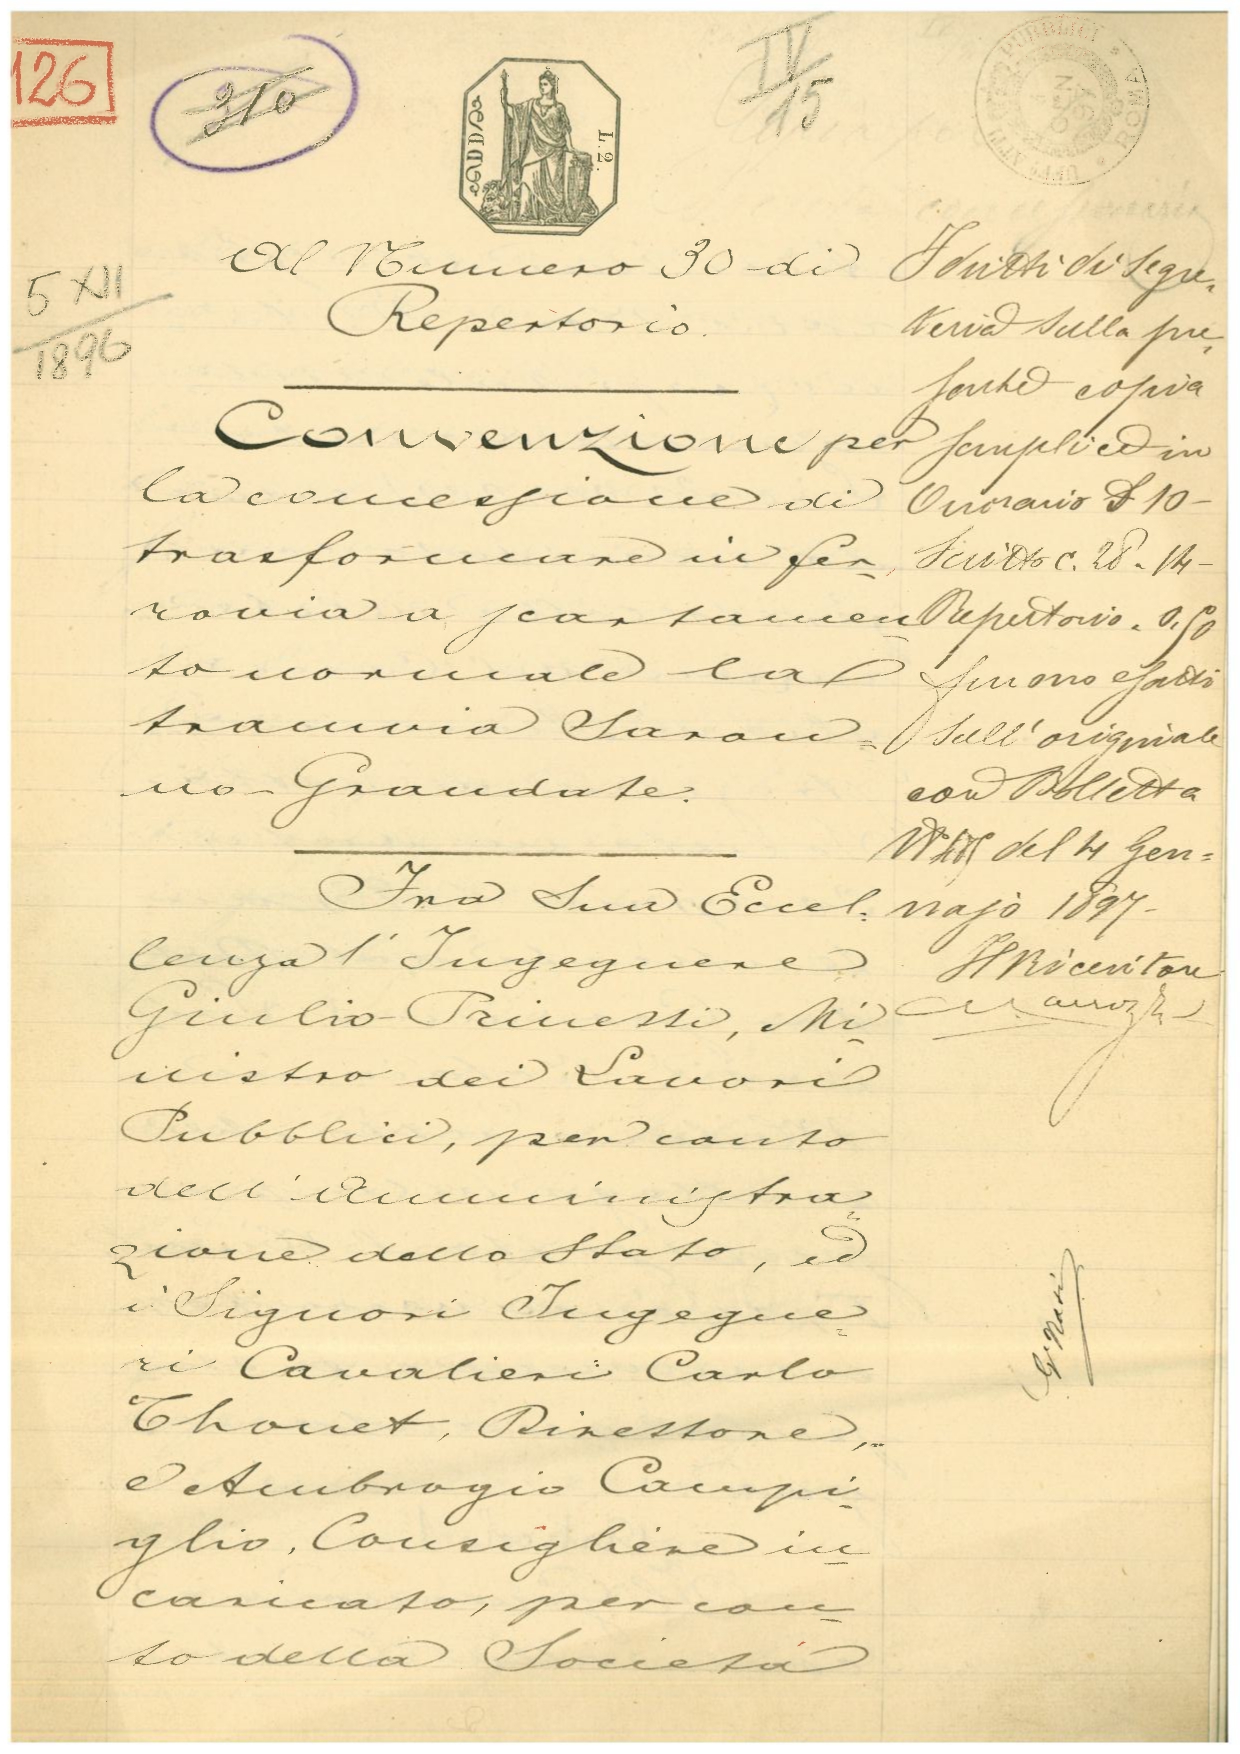 126
310
IV
15
L. 2.
ROMA
5 XII
1896
Al Numero 30 di
Repertorio.
Convenzione per
la concessione di
trasformare in fer-
rovia a scartamen
to normale la
tramvia Saron=
no-Grandate.
Fra Sua Eccel=
lenza l'Ingegnere
Giulio Prinetti, Mi=
nistro dei Lavori
Pubblici, per conto
dell'Amministra=
zione dello Stato, ed
i Signori Ingegne=
ri Cavalieri Carlo
Thonet, Direttore,
e Ambrogio Campi=
glio, Consigliere in=
caricato, per con=
to della Società
I diritti di Segre=
teria sulla pre=
sente copia
semplice in
Onorario £ 10-
Scritto c. 28. 14-
Repertorio. 0,50
furono esatti
sull'originale
con Bolletta
del 4 Gen=
najo 1897-
Il Ricevitore